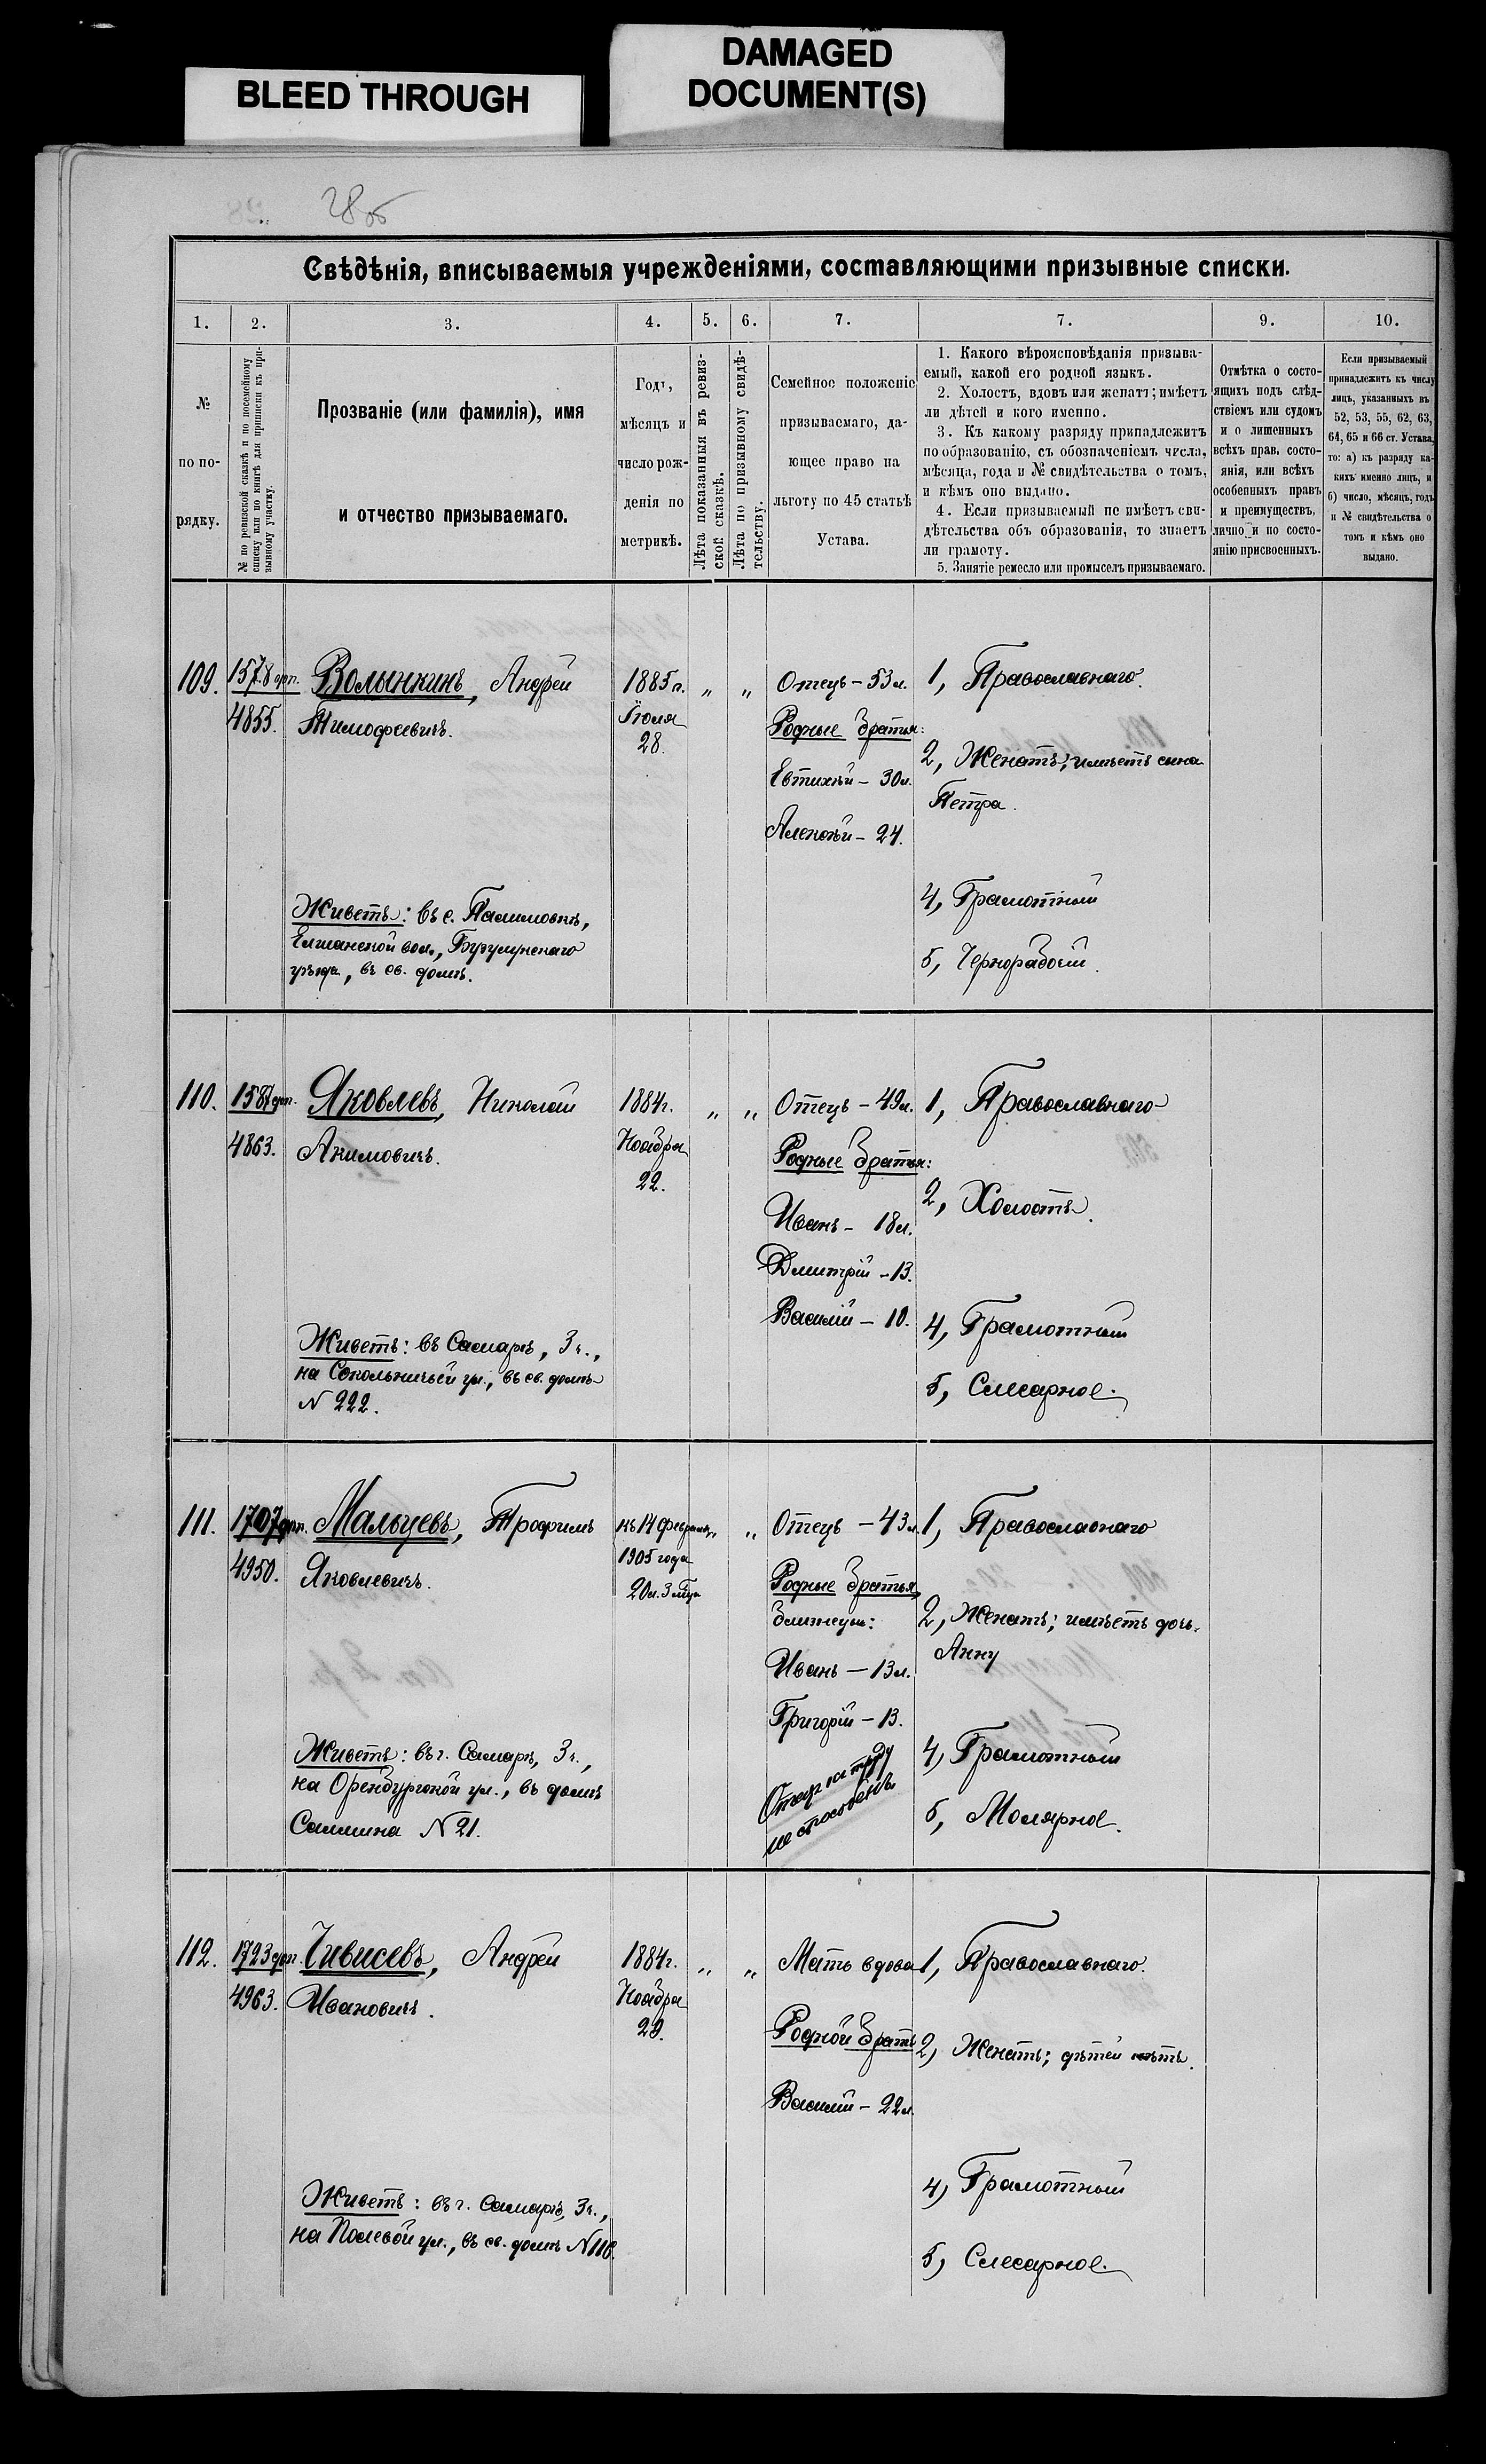 BLEED THROUGH
DAMAGED
DOCUMENT(S)
28 об
Свѣдѣнія, вписываемыя учрежденіями, составляющими призывные списки.
1. 2. 3. 4. 5. 6. 7. 7. 9. 10.
№
по по-
рядку.
№ по ревизской сказкѣ и по посемейному
списку или по книгѣ для приписки къ при-
зывному участку.
Прозваніе (или фамилія), имя
и отчество призываемаго.
Годъ,
мѣсяцъ и
число рож-
денія по
метрикѣ.
Лѣта показанныя въ ревиз-
ской сказкѣ.
Лѣта по призывному свидѣ-
тельству.
Семейное положеніе
призываемаго, да-
ющее право на
льготу по 45 статьѣ
Устава.
1. Какого вѣроисповѣданія призыва-
емый, какой его родной языкъ.
2. Холостъ, вдовъ или женатъ; имѣетъ
ли дѣтей и кого именно.
3. Къ какому разряду принадлежитъ
по образованію, съ обозначеніемъ числа,
мѣсяца, года и № свидѣтельства о томъ,
и кѣмъ оно выдано.
4. Если призываемый не имѣетъ сви-
дѣтельства объ образованіи, то знаетъ
ли грамоту.
5. Занятіе ремесло или промыселъ призываемаго.
Отмѣтка о состо-
ящихъ подъ слѣд-
ствіемъ или судомъ
и о лишенныхъ
всѣхъ прав. состо-
янія, или всѣхъ
особенныхъ правъ
и преимуществъ,
лично и по состо-
янію присвоенныхъ.
Если призываемый
принадлежитъ къ числу
лицъ, указанныхъ въ
52, 53, 55, 62, 63,
64, 65 и 66 ст. Устава,
то: а) къ разряду ка-
кихъ именно лицъ, и
б) число, мѣсяцъ, годъ
и № свидѣтельства о
томъ и кѣмъ оно
выдано.
109.
1578 доп.
4855.
Волынкинъ, Андрей
Тимофеевичъ.
Живетъ: въ с. Палимовкѣ,
Елшанской вол., Бузулукскаго
уѣзда, въ св. домѣ.
1885 г.
Іюля
28.
„ „
Отецъ – 53 л.
Родные братья:
Евтихій – 30 л.
Алексѣй – 24.
1, Православнаго.
2, Женатъ; имѣетъ сына
Петра.
4, Грамотный
5, Чернорабочій.
110.
1587 доп.
4863.
Яковлевъ, Николай
Акимовичъ.
Живетъ: въ Самарѣ, 3 ч.,
на Сокольничьей ул., въ св. домѣ
N 222.
1884 г.
Ноября
22.
„ „
Отецъ – 49 л.
Родные братья:
Иванъ – 18 л.
Дмитрій – 13.
Василій – 10.
1, Православнаго
2, Холостъ.
4, Грамотный
5, Слесарное.
111.
1707 доп.
4950.
Мальцевъ, Трофимъ
Яковлевичъ.
Живетъ: въ г. Самарѣ, 3 ч.,
на Оренбургской ул., въ домѣ
Саммина N 21.
къ 14 февраля
1905 года
20 л. 3 м-ца
„ „
Отецъ – 43 л.
Родные братья,
близнецы:
Иванъ – 13 л.
Григорій – 13.
Отецъ къ труду
не способенъ
1, Православнаго
2, Женатъ; имѣетъ дочь
Анну
4, Грамотный
5, Молярное.
112.
1723 доп.
4963.
Чивисевъ, Андрей
Ивановичъ.
Живетъ: въ г. Самарѣ, 3 ч.,
на Полевой ул., въ св. домѣ N 116.
1884 г.
Ноября
29.
„ „
Мать вдова
Родной братъ
Василій – 22 л.
1, Православнаго.
2, Женатъ; дѣтей нѣтъ.
4, Грамотный
5, Слесарное.